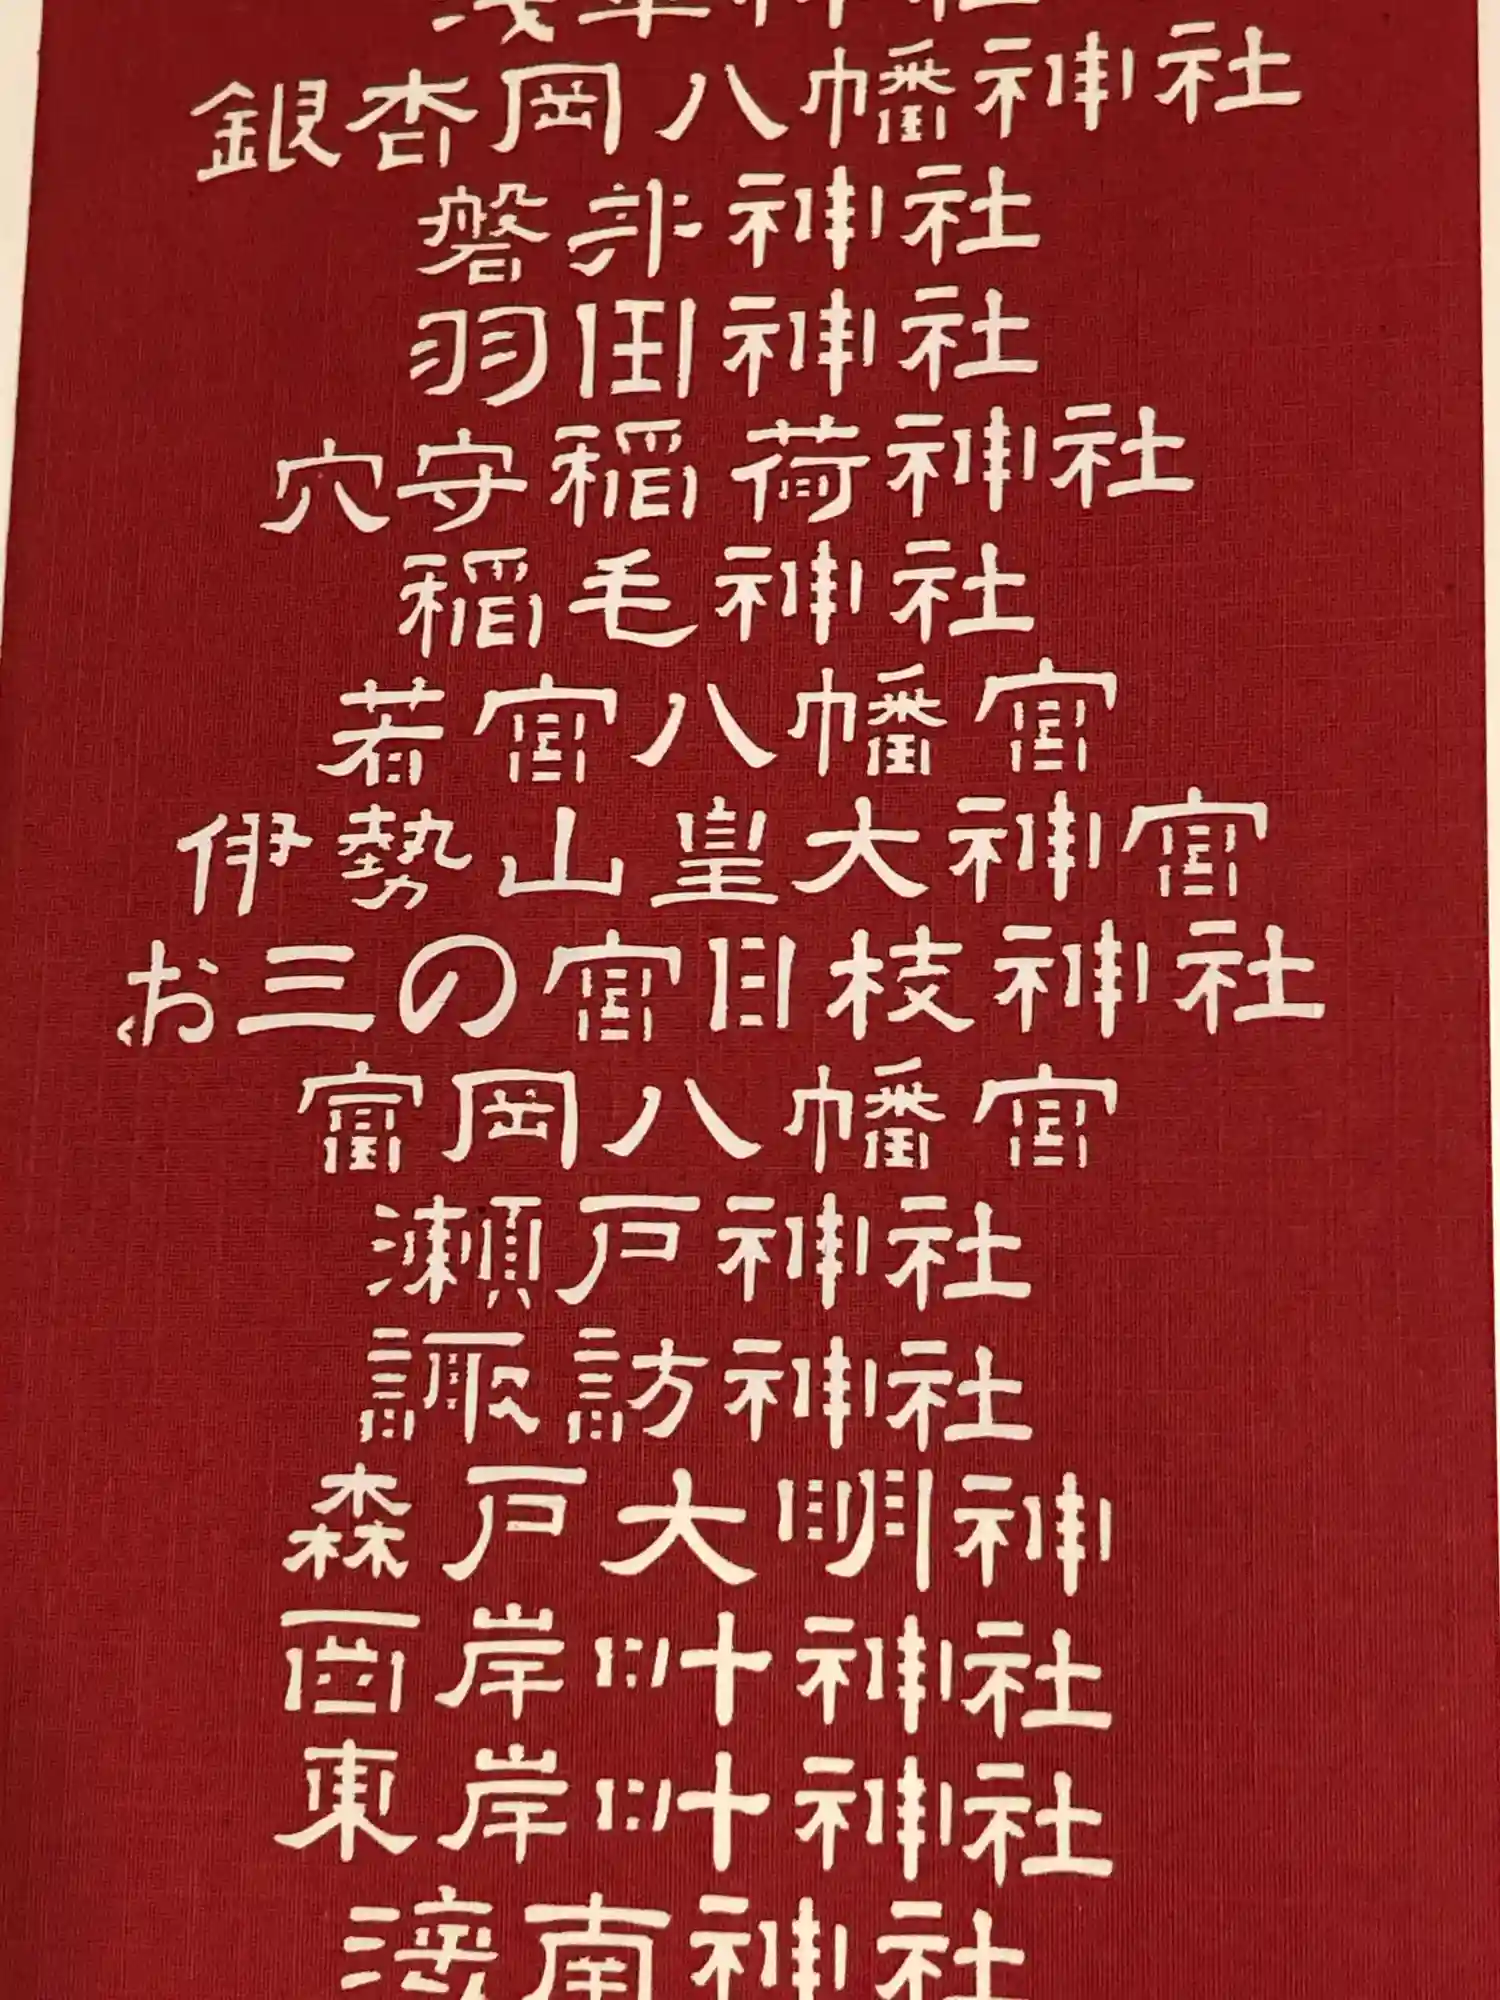 浅草神社
銀杏岡八幡神社
磐井神社
羽田神社
穴守稲荷神社
稲毛神社
若宮八幡宮
伊勢山皇大神宮
お三の宮日枝神社
富岡八幡宮
瀬戸神社
諏訪神社
森戸大明神
西岸叶神社
東岸叶神社
海南神社